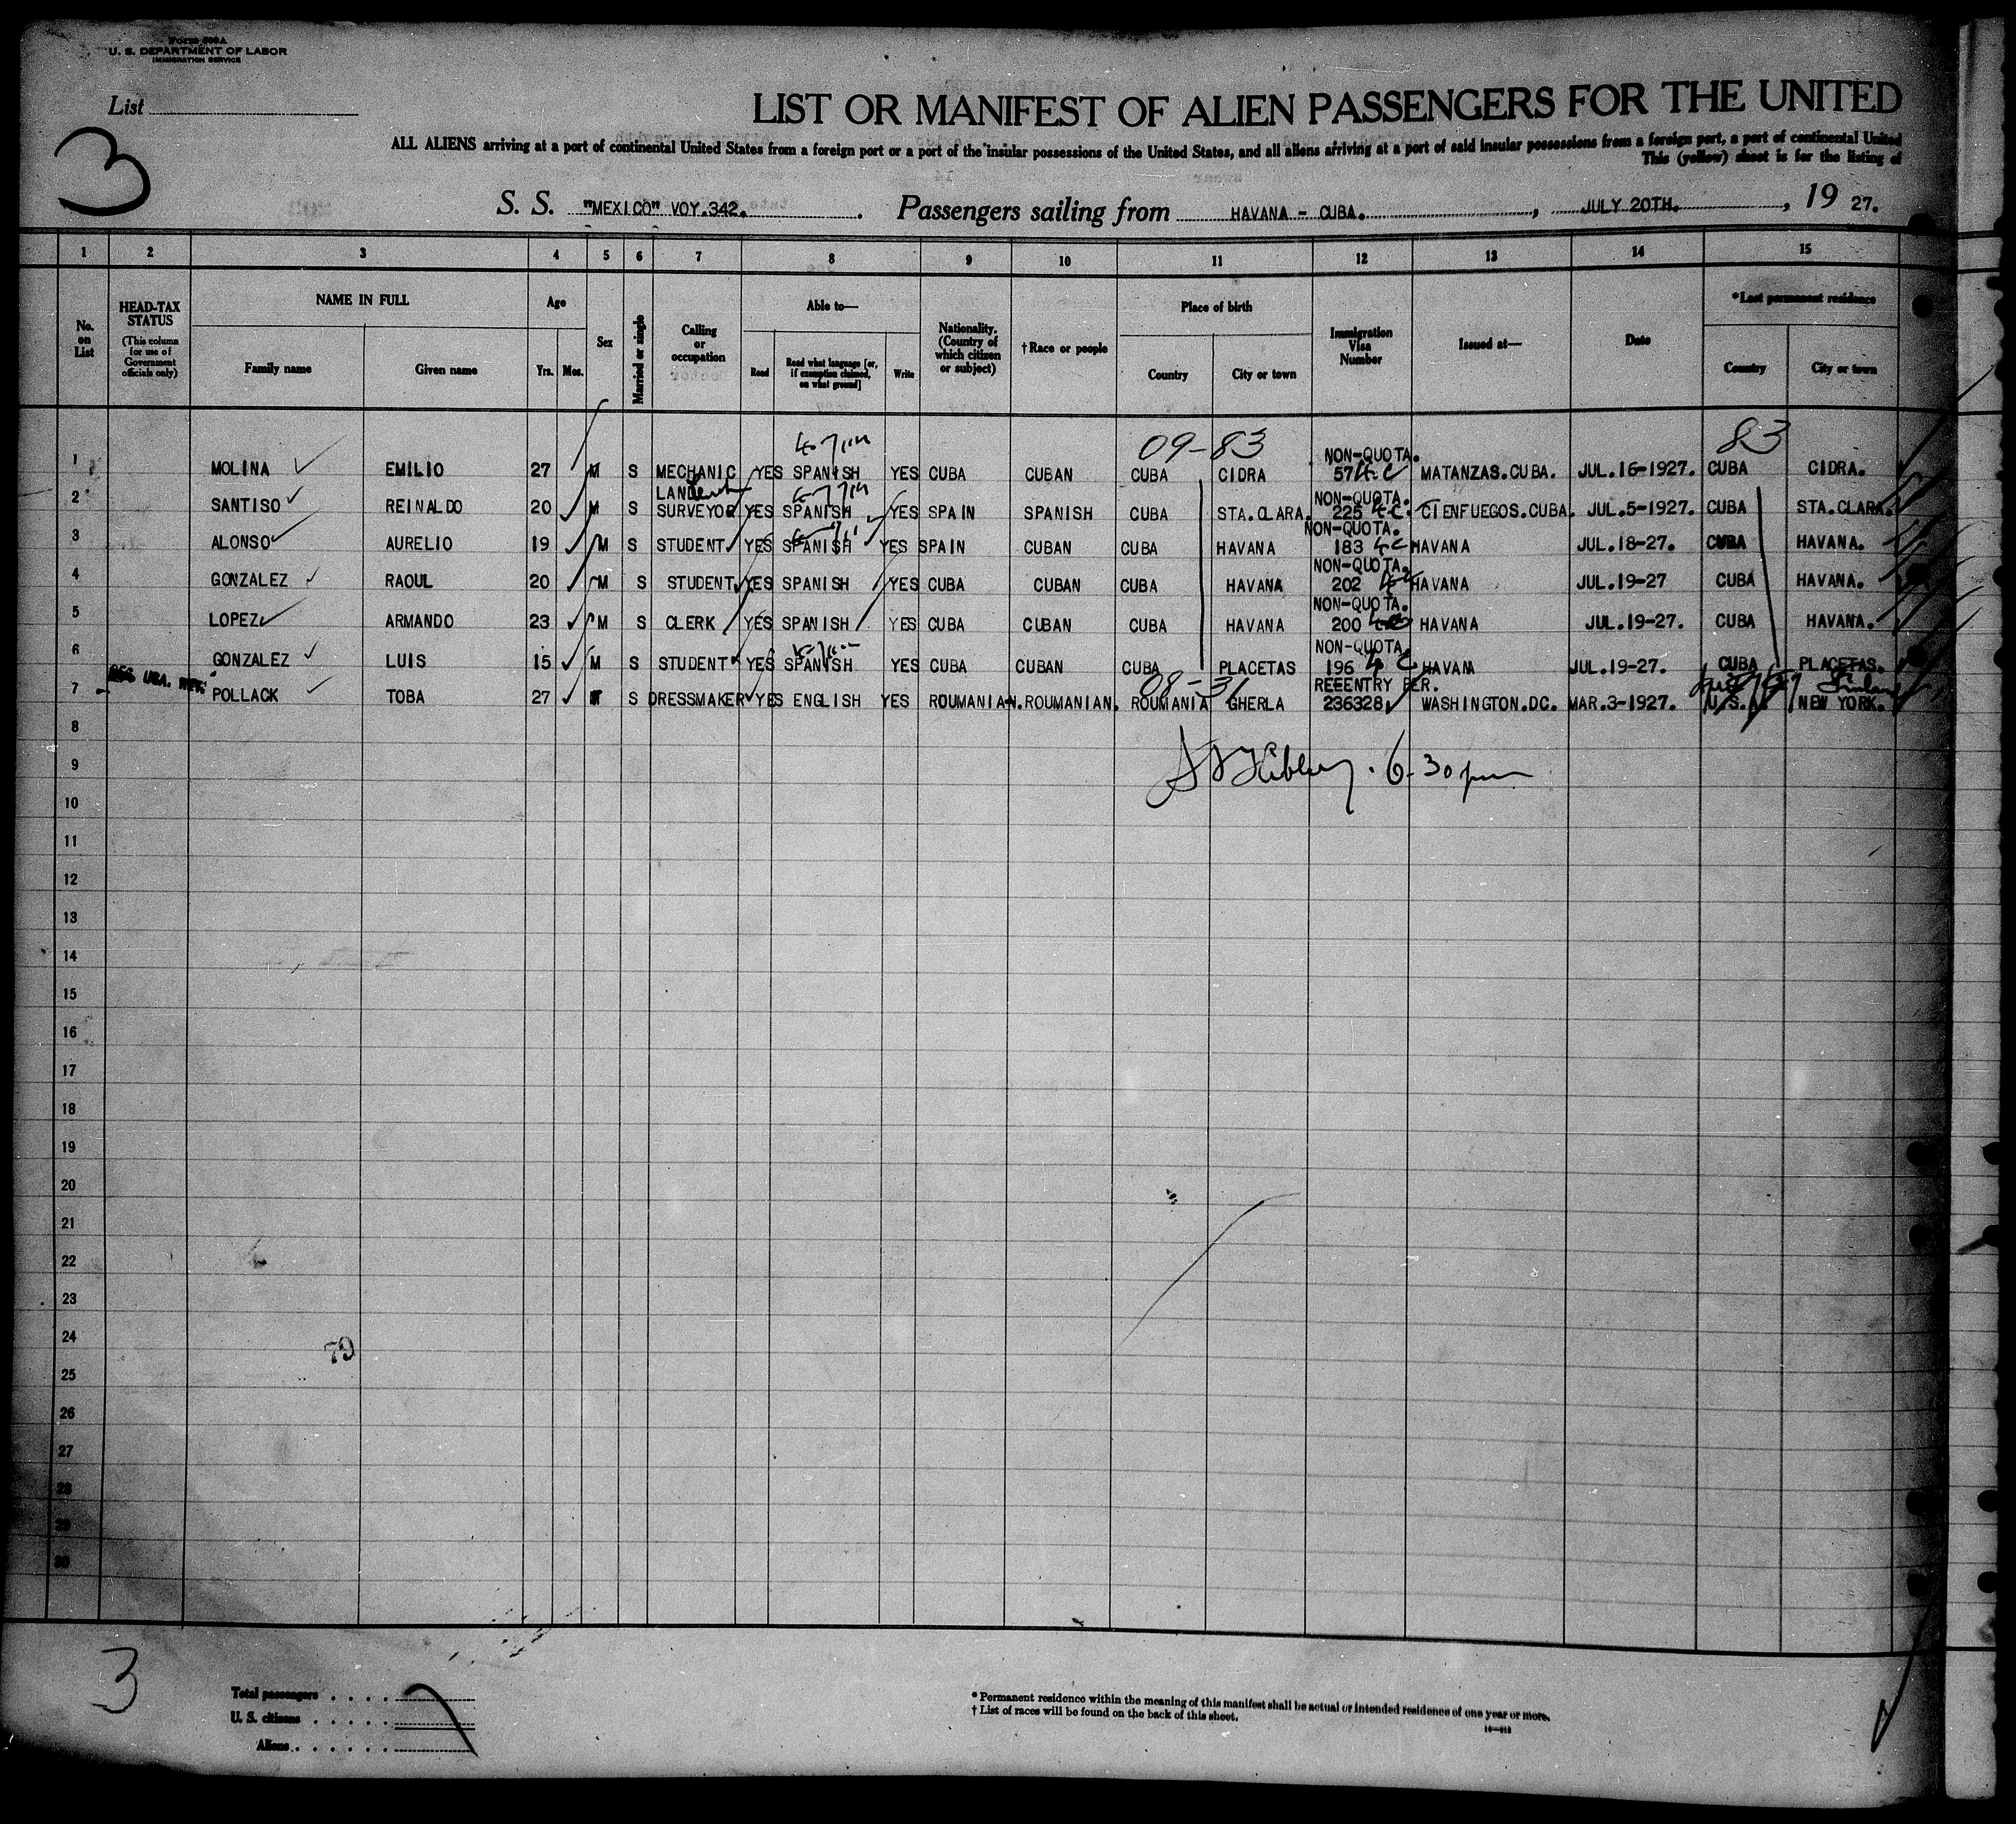 Form 500A
U. S. DEPARTMENT OF LABOR
IMMIGRATION SERVICE
List
3
LIST OR MANIFEST OF ALIEN PASSENGERS FOR THE UNITED
ALL ALIENS arriving at a port of continental United States from a foreign port or a port of the insular possessions of the United States, and all aliens arriving at a port of said insular possessions from a foreign port, a port of continental United
This (yellow) sheet is for the listing of
S. S. "MEXICO" VOY.342. Passengers sailing from HAVANA - CUBA. , JULY 20TH. , 19 27.
1 2 3 4 5 6 7 8 9 10 11 12 13 14 15
No. on List
HEAD-TAX STATUS (This column for use of Government officials only)
NAME IN FULL
Family name
Given name
Age
Yrs. Mos.
Sex
Married or single
Calling or occupation
Able to—
Read
Read what language [or, if exemption claimed, on what ground]
Write
Nationality. (Country of which citizen or subject)
† Race or people
Place of birth
Country
City or town
Immigration Visa Number
Issued at—
Date
*Last permanent residence
Country
City or town
09-83 83
NON-QUOTA.
1 MOLINA EMILIO 27 M S MECHANIC YES SPANISH YES CUBA CUBAN CUBA CIDRA 57 MATANZAS.CUBA. JUL.16-1927. CUBA CIDRA.
LAND NON-QUOTA.
2 SANTISO REINALDO 20 M S SURVEYOR YES SPANISH YES SPAIN SPANISH CUBA STA.CLARA. 225 CIENFUEGOS.CUBA. JUL.5-1927. CUBA STA.CLARA.
NON-QUOTA.
3 ALONSO AURELIO 19 M S STUDENT YES SPANISH YES SPAIN CUBAN CUBA HAVANA 183 HAVANA JUL.18-27. CUBA HAVANA.
NON-QUOTA.
4 GONZALEZ RAOUL 20 M S STUDENT YES SPANISH YES CUBA CUBAN CUBA HAVANA 202 HAVANA JUL.19-27 CUBA HAVANA.
NON-QUOTA.
5 LOPEZ ARMANDO 23 M S CLERK YES SPANISH YES CUBA CUBAN CUBA HAVANA 200 HAVANA JUL.19-27. CUBA HAVANA.
NON-QUOTA
6 GONZALEZ LUIS 15 M S STUDENT YES SPANISH YES CUBA CUBAN CUBA PLACETAS 196 HAVANA JUL.19-27. CUBA PLACETAS.
08-31 REEENTRY PER.
7 POLLACK TOBA 27 S DRESSMAKER YES ENGLISH YES ROUMANIAN. ROUMANIAN. ROUMANIA GHERLA 236328 WASHINGTON.DC. MAR.3-1927. U.S.A. NEW YORK.
8
9 6-30 pm
10
11
12
13
14
15
16
17
18
19
20
21
22
23
24
79
25
26
27
28
29
30
3
Total passengers
U. S. citizens
Aliens
* Permanent residence within the meaning of this manifest shall be actual or intended residence of one year or more.
† List of races will be found on the back of this sheet.